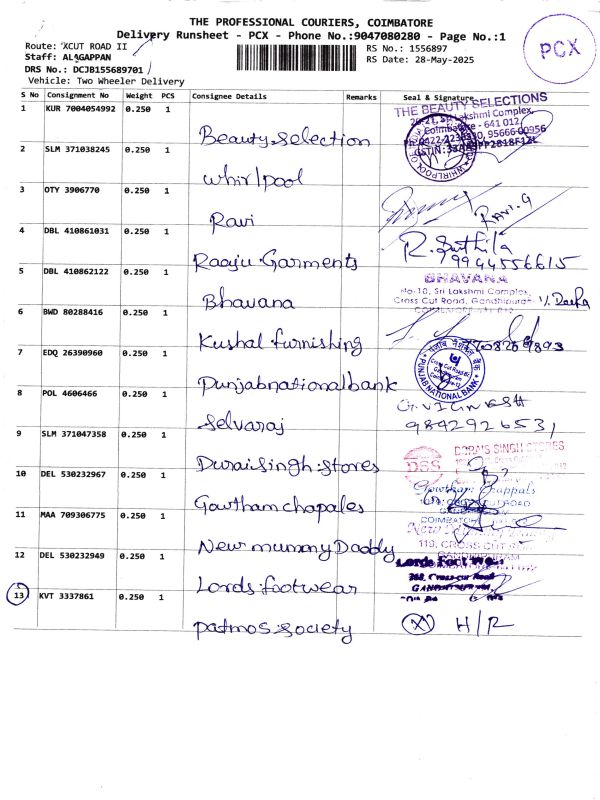 THE PROFESSIONAL COURIERS, COIMBATORE
Delivery Runsheet - PCX - Phone No.:9047080280 - Page No.:1
PCX
Route: XCUT ROAD II
RS No.: 1556897
Staff: ALAGAPPAN
RS Date: 28-May-2025
DRS No.: DCJB155689701
Vehicle: Two Wheeler Delivery
S No Consignment No Weight PCS Consignee Details Remarks Seal & Signature
1 KUR 7004054992 0.250 1 Beauty selection
THE BEAUTY SELECTIONS
Lakshmi Complex,
Coimbatore - 641 012
2 SLM 371038245 0.250 1 Whirlpool
3 OTY 3906770 0.250 1 Ravi Ravi.G
4 DBL 410861031 0.250 1 Raaju Garments
9944556615
5 DBL 410862122 0.250 1 Bhavana
BHAVANA
No-10, Sri Lakshmi Complex,
Cross Cut Road, Gandhipuram
COIMBATORE-641 012
6 BWD 80288416 0.250 1 Kushal furnishing
7 EDQ 26390960 0.250 1 Punjabnationalbank
PUNJAB NATIONAL BANK
8 POL 4606466 0.250 1 Selvaraj
G.VIGNESH
9842926531
9 SLM 371047358 0.250 1 Duraisingh.stores
DSS DORAI SINGH STORES
10 DEL 530232967 0.250 1 Gowthamchapales
Gowtham Chappals
COIMBATORE
11 MAA 709306775 0.250 1 New mummy Daddy
New
119, CROSS CUT
GANDHIPURAM
12 DEL 530232949 0.250 1 Lords.footwear
Lords Foot
Cross-cut Road
13 KVT 3337861 0.250 1 patmos.society X H/R